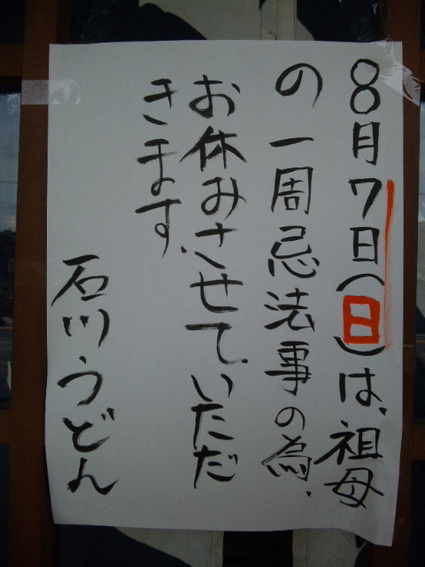 8月7日(日)は、祖母
の一周忌法事の為、
お休みさせていただ
きます。
石川うどん